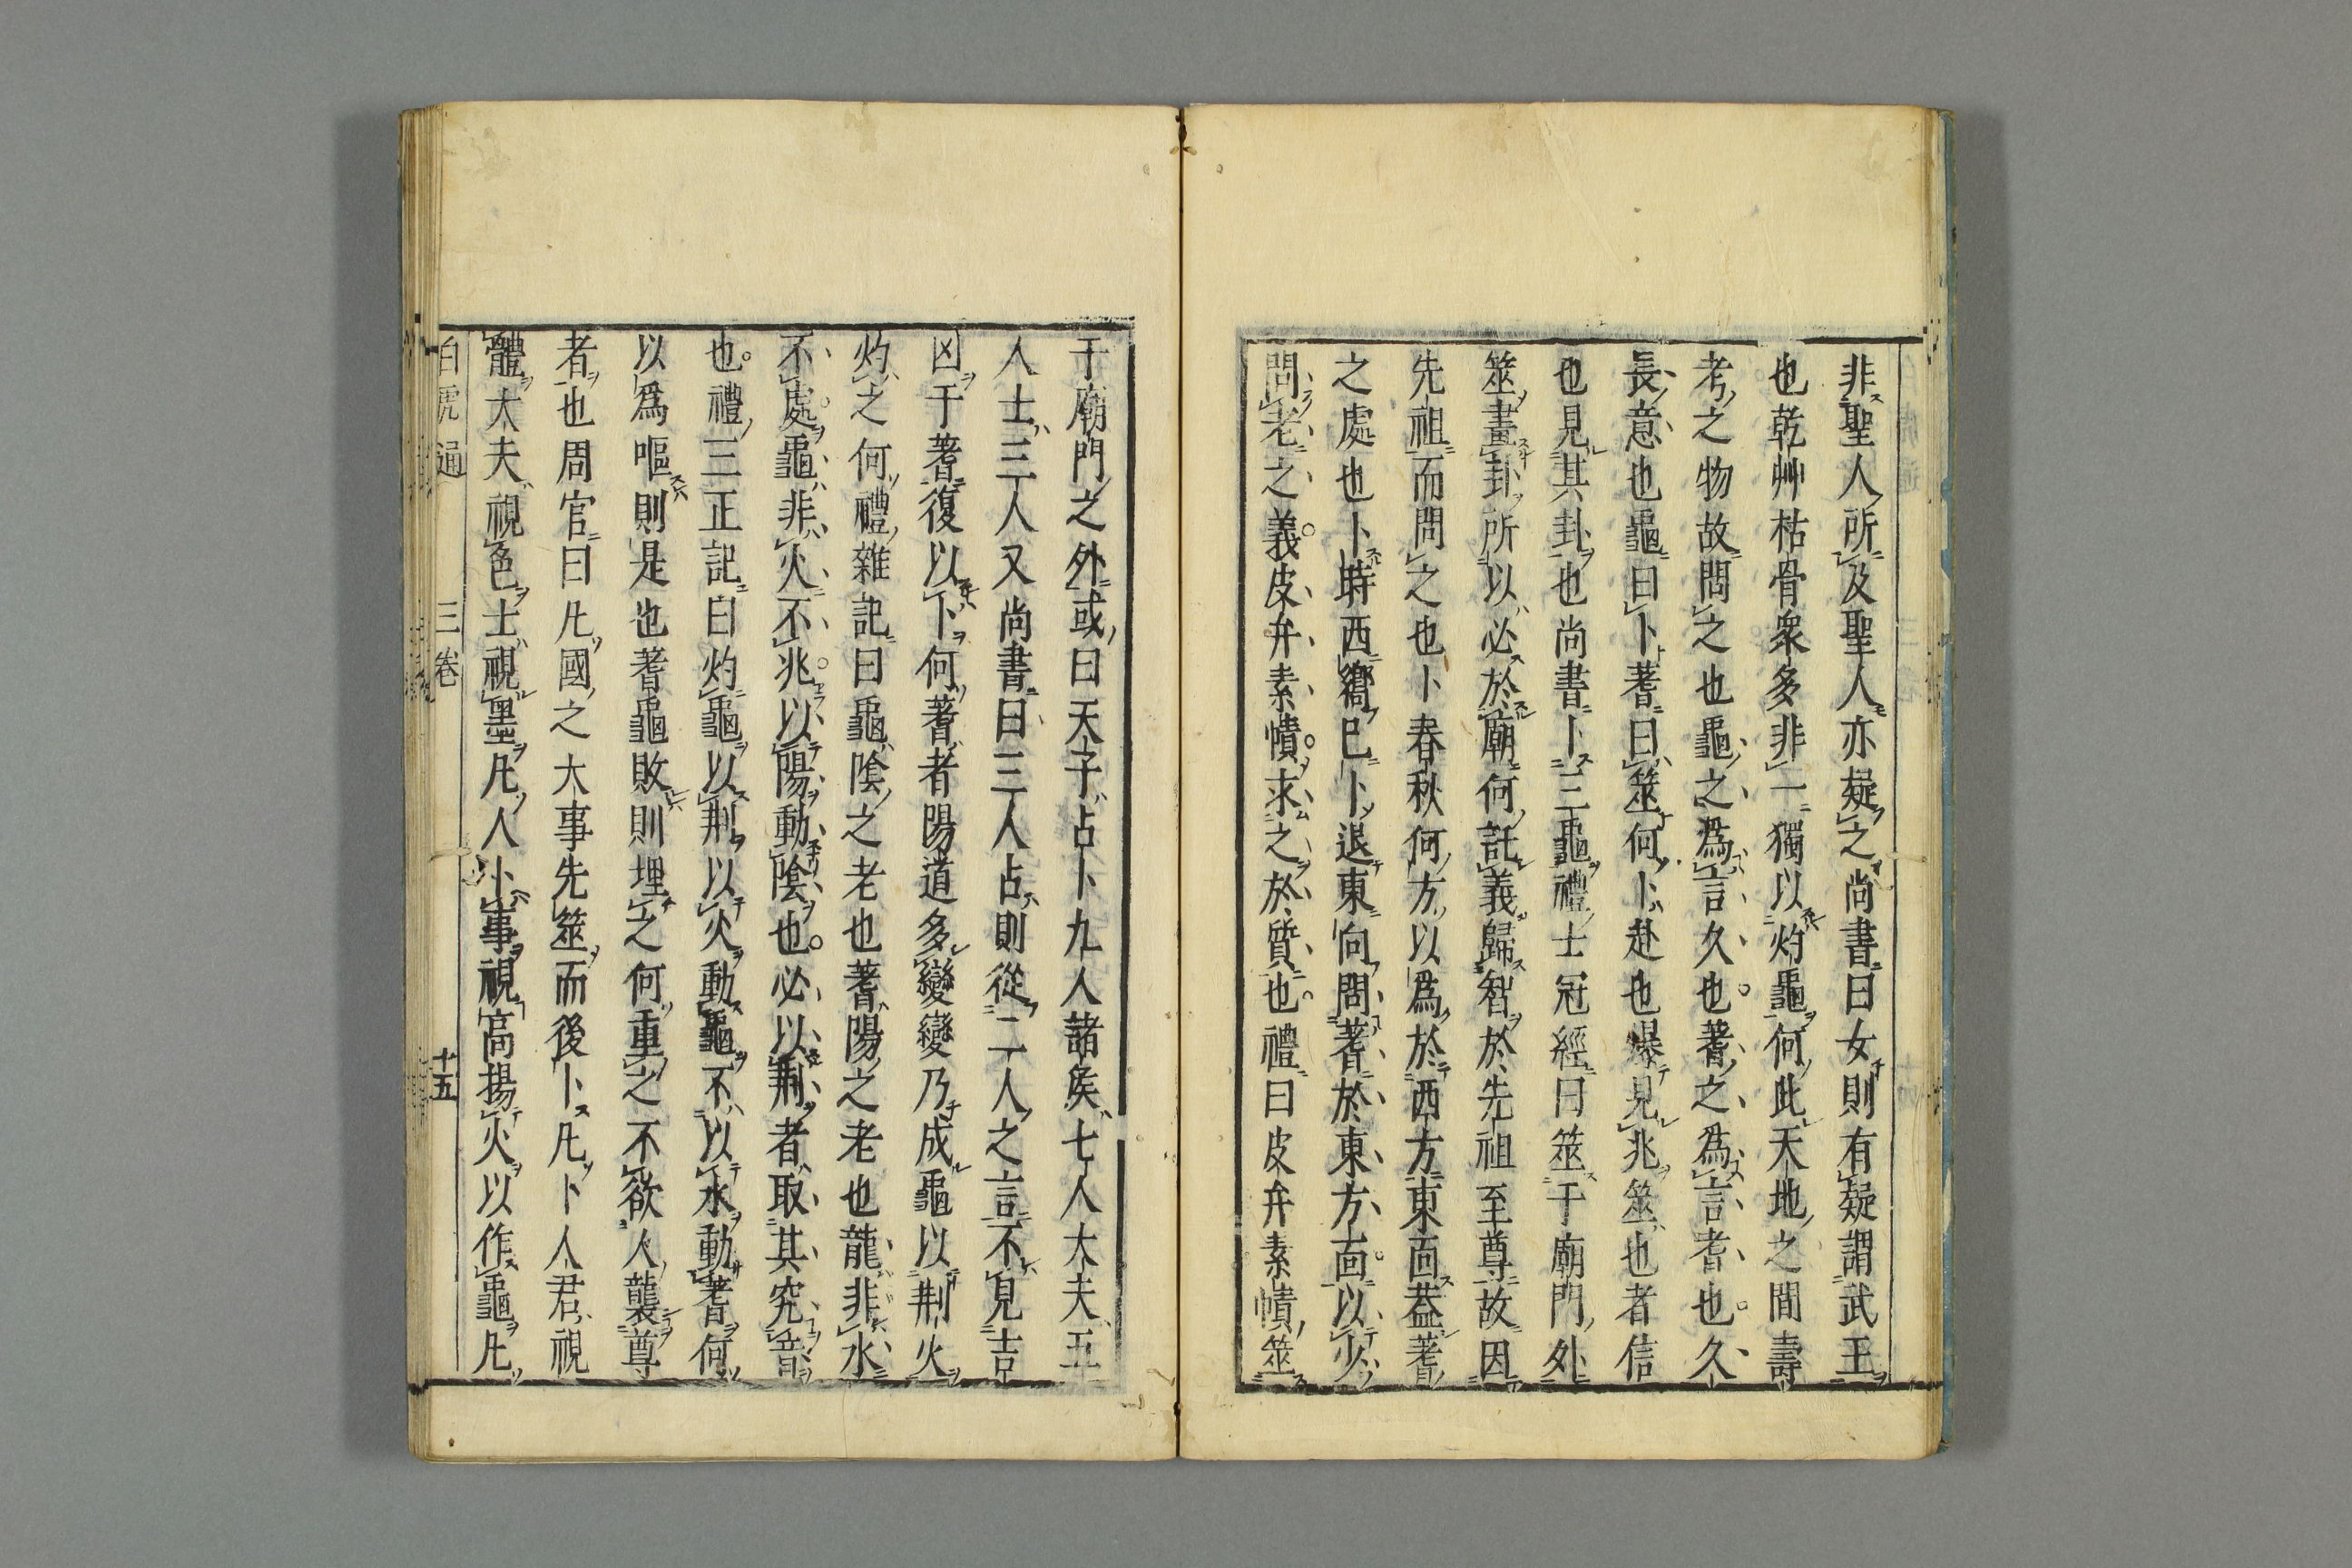 非聖人所及聖人亦疑之尚書曰女則有疑謂武王
也乾艸枯骨衆多非一獨以灼龜何此天地之間壽
考之物故問之也龜之爲言久也蓍之爲言耆也久
長意也龜曰卜蓍曰筮何卜赴也爆見兆筮也者信
也見其卦也尚書卜三龜禮士冠經曰筮于廟門外
筮畫卦所以必於廟何託義歸智於先祖至尊故因
先祖而問之也卜春秋何方以爲於西方東面葢蓍
之處也卜時西嚮已卜退東向問蓍於東方面以少
問老之義皮弁素幘求之於質也禮曰皮弁素幘筮
于廟門之外或曰天子占卜九人諸矦七人大夫五
人士三人又尚書曰三人占則從二人之言不見吉
凶于蓍復以卜何蓍者陽道多變變乃成龜以荆火
灼之何禮雜記曰龜陰之老也蓍陽之老也龍非水
不處龜非火不兆以陽動陰也必以荆者取其究音
也禮三正記曰灼龜以荆以火動龜不以水動蓍何
以爲嘔則是也蓍龜敗則埋之何重之不欲人襲尊
者也周官曰凡國之大事先筮而後卜凡卜人君視
體大夫視色士視墨凡人卜事視高揚火以作龜凡
白虎通 三卷 十五